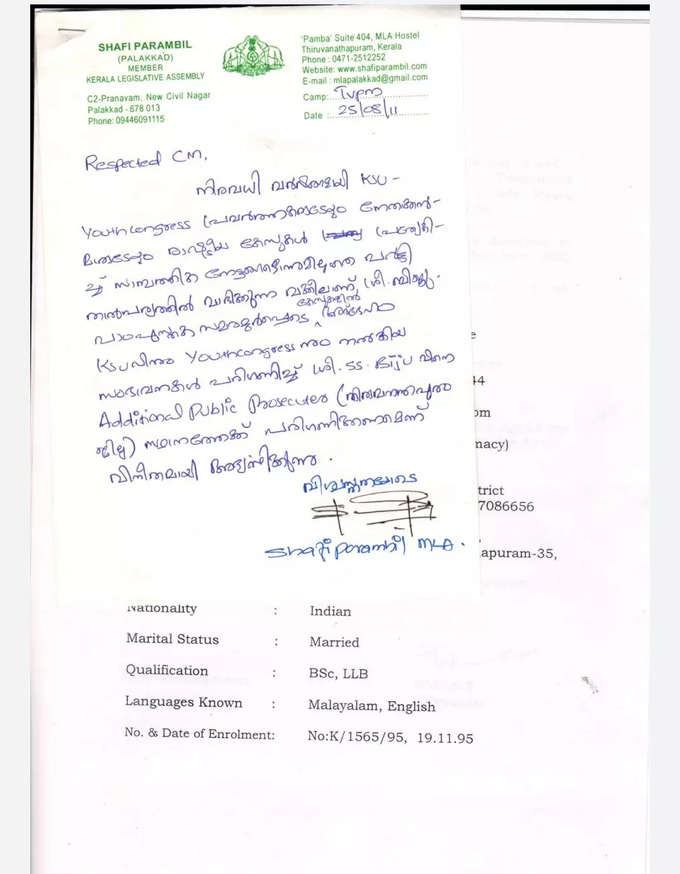 SHAFI PARAMBIL
(PALAKKAD)
MEMBER
KERALA LEGISLATIVE ASSEMBLY
C2-Pranavam, New Civil Nagar
Palakkad - 678 013
Phone: 09446091115
'Pamba' Suite 404, MLA Hostel
Thiruvanathapuram, Kerala
Phone : 0471-2512252
Website: www.shafiparambil.com
E-mail : mlapalakkad@gmail.com
Camp: Tvpm
Date : 25/08/11
Respected CM,
നിരവധി വർഷങ്ങളായി KSU -
Youth Congress പ്രവർത്തകരുടെയും നേതാക്കൻ-
മാരുടെയും രാഷ്ട്രീയ കേസുകൾ
സാമ്പത്തിക
താൽപര്യത്തിൽ വാദിക്കുന്ന വക്കീലാണ് ശ്രീ. ബിജു.
പാഠപുസ്തക കേസുകളിൽ
KSU വിനും Youth Congress നും നൽകിയ
സംഭാവനകൾ പരിഗണിച്ച് ശ്രീ. SS. ബിജു വിനെ
Additional Public Prosecuter (തിരുവനന്തപുരം
ജില്ല) സ്ഥാനത്തേക്ക് പരിഗണിക്കണമെന്ന്
വിനീതമായി അഭ്യർത്ഥിക്കുന്നു.
വിശ്വസ്തതയോടെ
Shafi Parambil MLA.
e
44
om
nacy)
trict
7086656
apuram-35,
Nationality : Indian
Marital Status : Married
Qualification : BSc, LLB
Languages Known : Malayalam, English
No. & Date of Enrolment: No:K/1565/95, 19.11.95